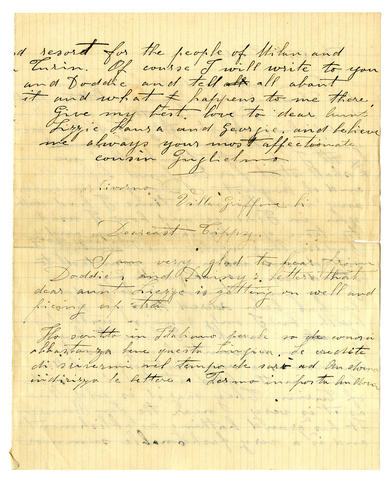 d resort for the people of Milan and
Turin. Of course I will write to you
and Doddie and tell all about
it and what happens to me there.
Give my best love to dear aunt
Lizzie Laura and Georgie, and believe
me always your most affectionate
cousin Guglielmo
Livorno
Villa Griffone
Dearest Cissy.
I am very glad to hear from
Doddie's and letters that
dear aunt is getting on well and
Ho scritto in Italiano perché so che conosci
abbastanza bene questa lingua. Se credete
di scrivermi nel tempo che sarò ad Andorno
indirizza le lettere a Fermo in posta Andorno